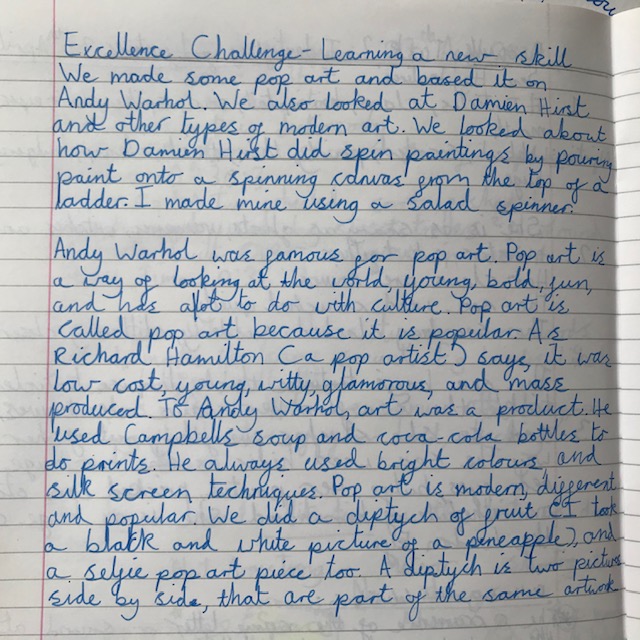 Excellence Challenge - Learning a new skill
We made some pop art and based it on
Andy Warhol. We also looked at Damien Hirst
and other types of modern art. We looked about
how Damien Hirst did spin paintings by pouring
paint onto a spinning canvas from the top of a
ladder. I made mine using a salad spinner.
Andy Warhol was famous for pop art. Pop art is
a way of looking at the world, young, bold, fun,
and has alot to do with culture. Pop art is
called pop art because it is popular. As
Richard Hamilton (a pop artist) says, it was
low cost, young, witty, glamorous, and mass
produced. To Andy Warhol, art was a product. He
used Campbells soup and coca-cola bottles to
do prints. He always used bright colours, and
silk screen techniques. Pop art is modern, different
and popular. We did a diptych of fruit (I took
a black and white picture of a pineapple), and
a selfie pop art piece too. A diptych is two pictures
side by side, that are part of the same artwork